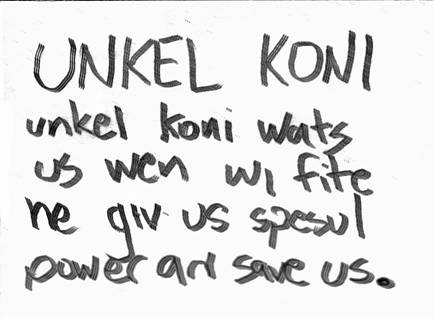 UNKEL KONI
unkel koni wats
us wen wi fite
he giv us spesul
power an save us.